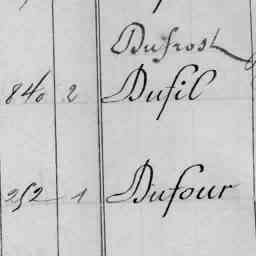 Dufrost
840 2 Dufil
252 1 Dufour